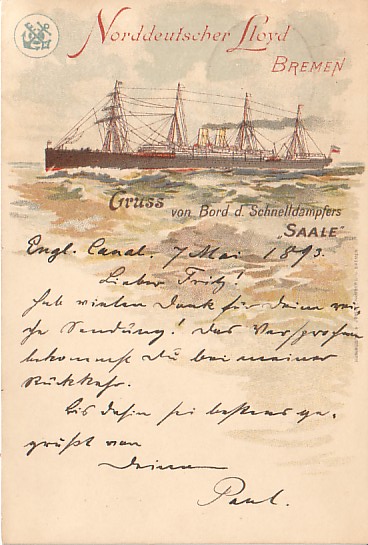 Norddeutscher Lloyd
BREMEN
Gruss von Bord d. Schnelldampfers
„SAALE"
Engl. Canal. 7 Mai 1893.
Lieber Fritz!
hab vielen Dank für Deine rei-
che Sendung! Das Versprochene
bekommst Du bei meiner
Rückkehr.
Bis dahin sei bestens ge-
grüßt von
Deinem
Paul.